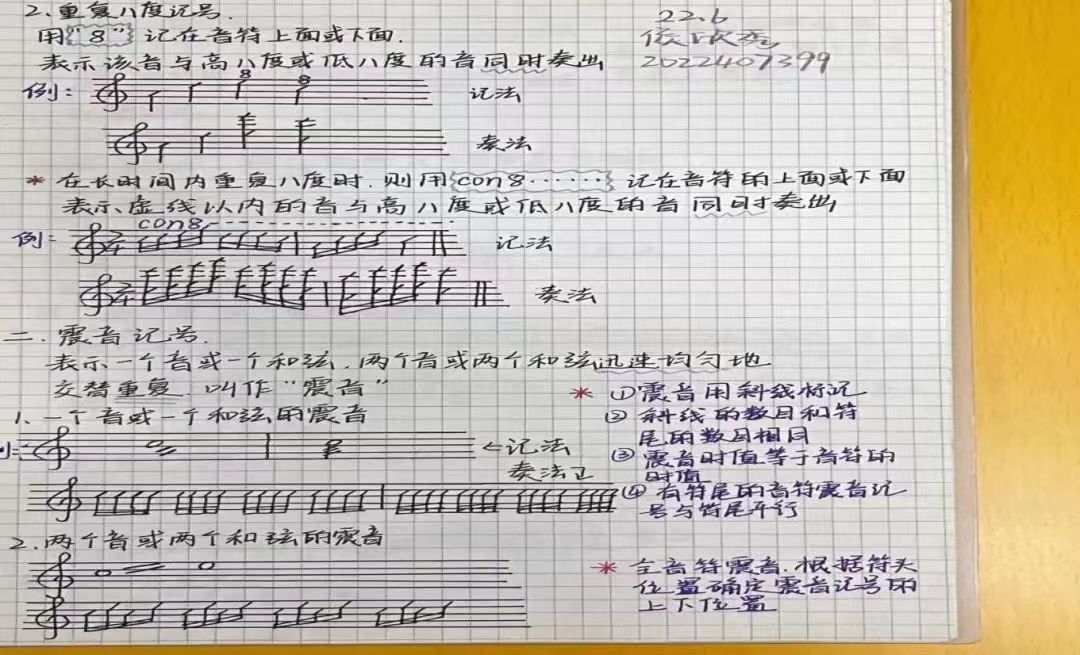 2.重复八度记号.
22.6
用"8"记在音符上面或下面.
表示该音与高八度或低八度的音同时奏出
2022407399
例:
8
8
记法
奏法
* 在长时间内重复八度时.则用con8······记在音符的上面或下面
表示虚线以内的音与高八度或低八度的音同时奏出
con8
例:
记法
奏法
二.震音记号.
表示一个音或一个和弦.两个音或两个和弦迅速均匀地
交替重复.叫作"震音"
* ①震音用斜线标记
②斜线的数目和符
尾的数目相同
③震音时值等于音符的
时值
④有符尾的音符震音记
号与符尾平行
1.一个音或一个和弦的震音
←记法
奏法
2.两个音或两个和弦的震音
* 全音符震音.根据符头
位置确定震音记号的
上下位置